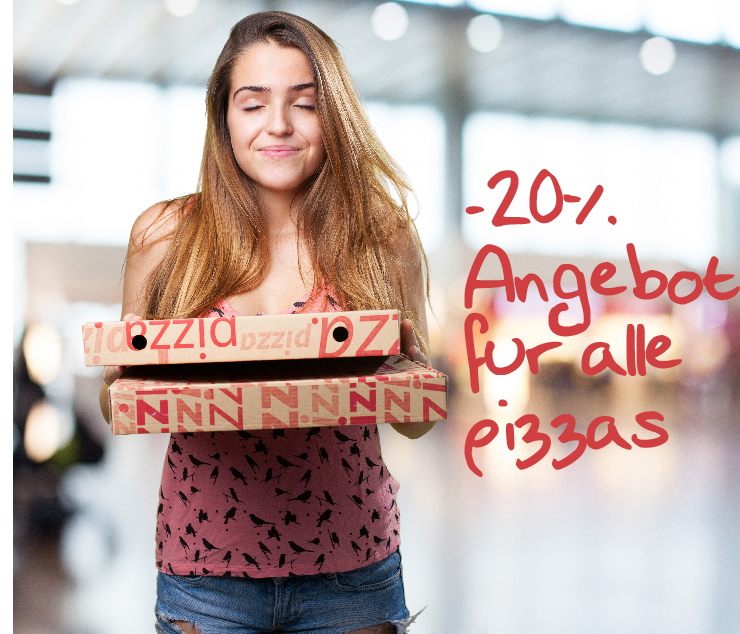 -20%
Angebot
fur alle
pizzas
pizza pizza pizza